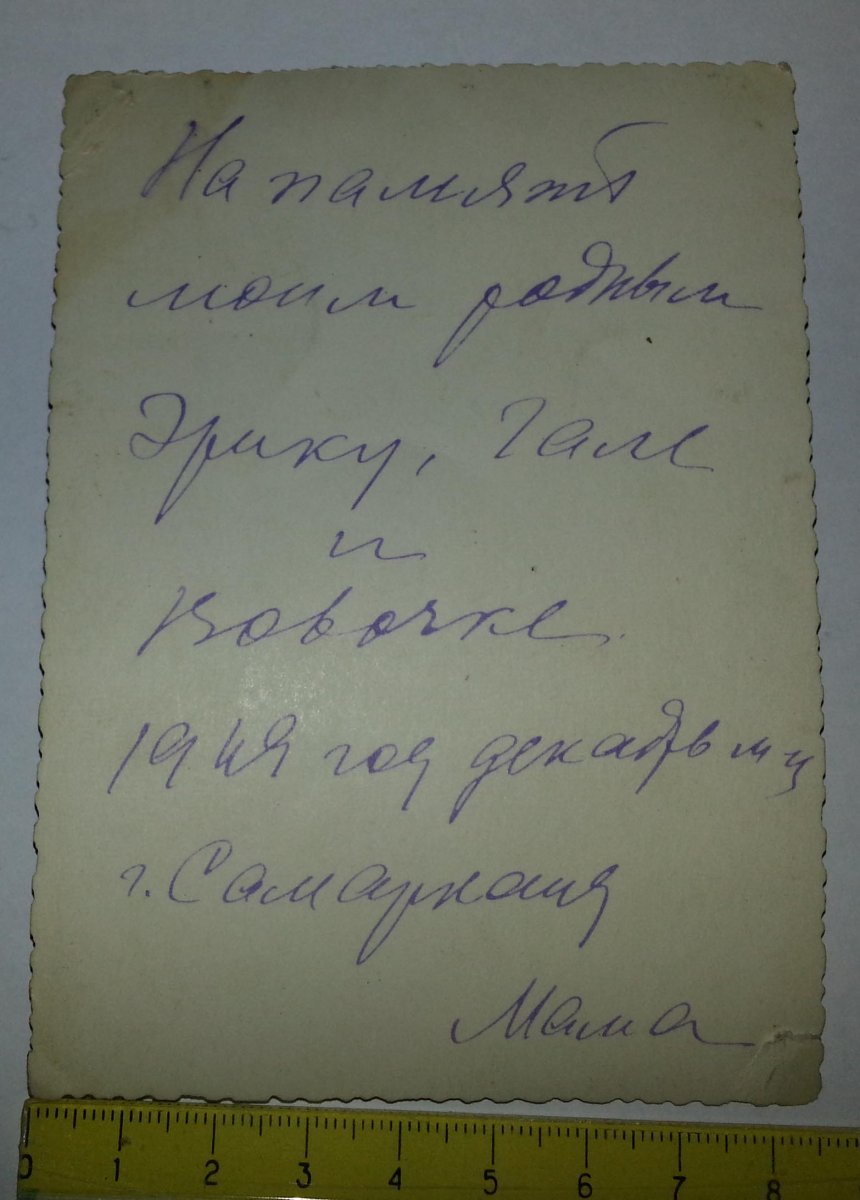 На память
моим родным
Эрику, Гале
и
Вовочке.
1949 год декабрь м-ц
г. Самарканд
Мама
0 1 2 3 4 5 6 7 8